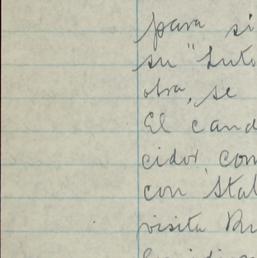 para si
su "Luto
obra, se
El cand
cidor, com
con Stal
visita Ru